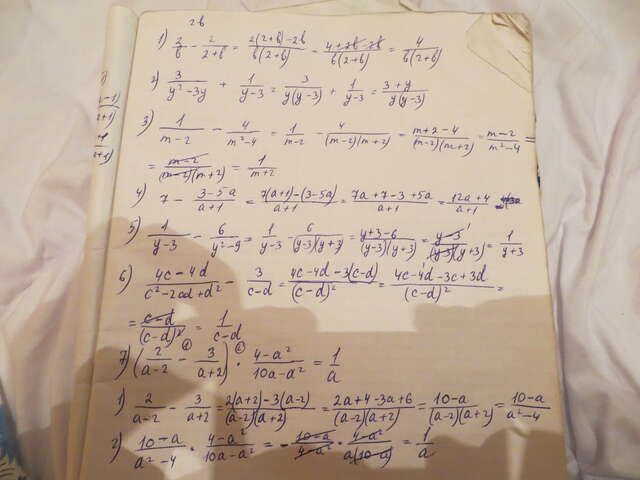 2b
1) 2/b - 2/(2+b) = (2(2+b)-2b)/(b(2+b)) = (4+2b-2b)/(b(2+b)) = 4/(b(2+b))
2) 3/(y²-3y) + 1/(y-3) = 3/(y(y-3)) + 1/(y-3) = (3+y)/(y(y-3))
3) 1/(m-2) - 4/(m²-4) = 1/(m-2) - 4/((m-2)(m+2)) = (m+2-4)/((m-2)(m+2)) = (m-2)/(m²-4) =
= (m-2)/((m-2)(m+2)) = 1/(m+2)
4) 7 - (3-5a)/(a+1) = (7(a+1)-(3-5a))/(a+1) = (7a+7-3+5a)/(a+1) = (12a+4)/(a+1)
5) 1/(y-3) - 6/(y²-9) = 1/(y-3) - 6/((y-3)(y+3)) = (y+3-6)/((y-3)(y+3)) = (y-3)/((y-3)(y+3)) = 1/(y+3)
6) (4c-4d)/(c²-2cd+d²) - 3/(c-d) = (4c-4d-3(c-d))/((c-d)²) = (4c-4d-3c+3d)/((c-d)²) =
= (c-d)/((c-d)²) = 1/(c-d)
7) (2/(a-2) -① 3/(a+2)) ·② (4-a²)/(10a-a²) = 1/a
1) 2/(a-2) - 3/(a+2) = (2(a+2)-3(a-2))/((a-2)(a+2)) = (2a+4-3a+6)/((a-2)(a+2)) = (10-a)/((a-2)(a+2)) = (10-a)/(a²-4)
2) (10-a)/(a²-4) · (4-a²)/(10a-a²) = -(10-a)/(4-a²) · (4-a²)/(a(10-a)) = 1/a